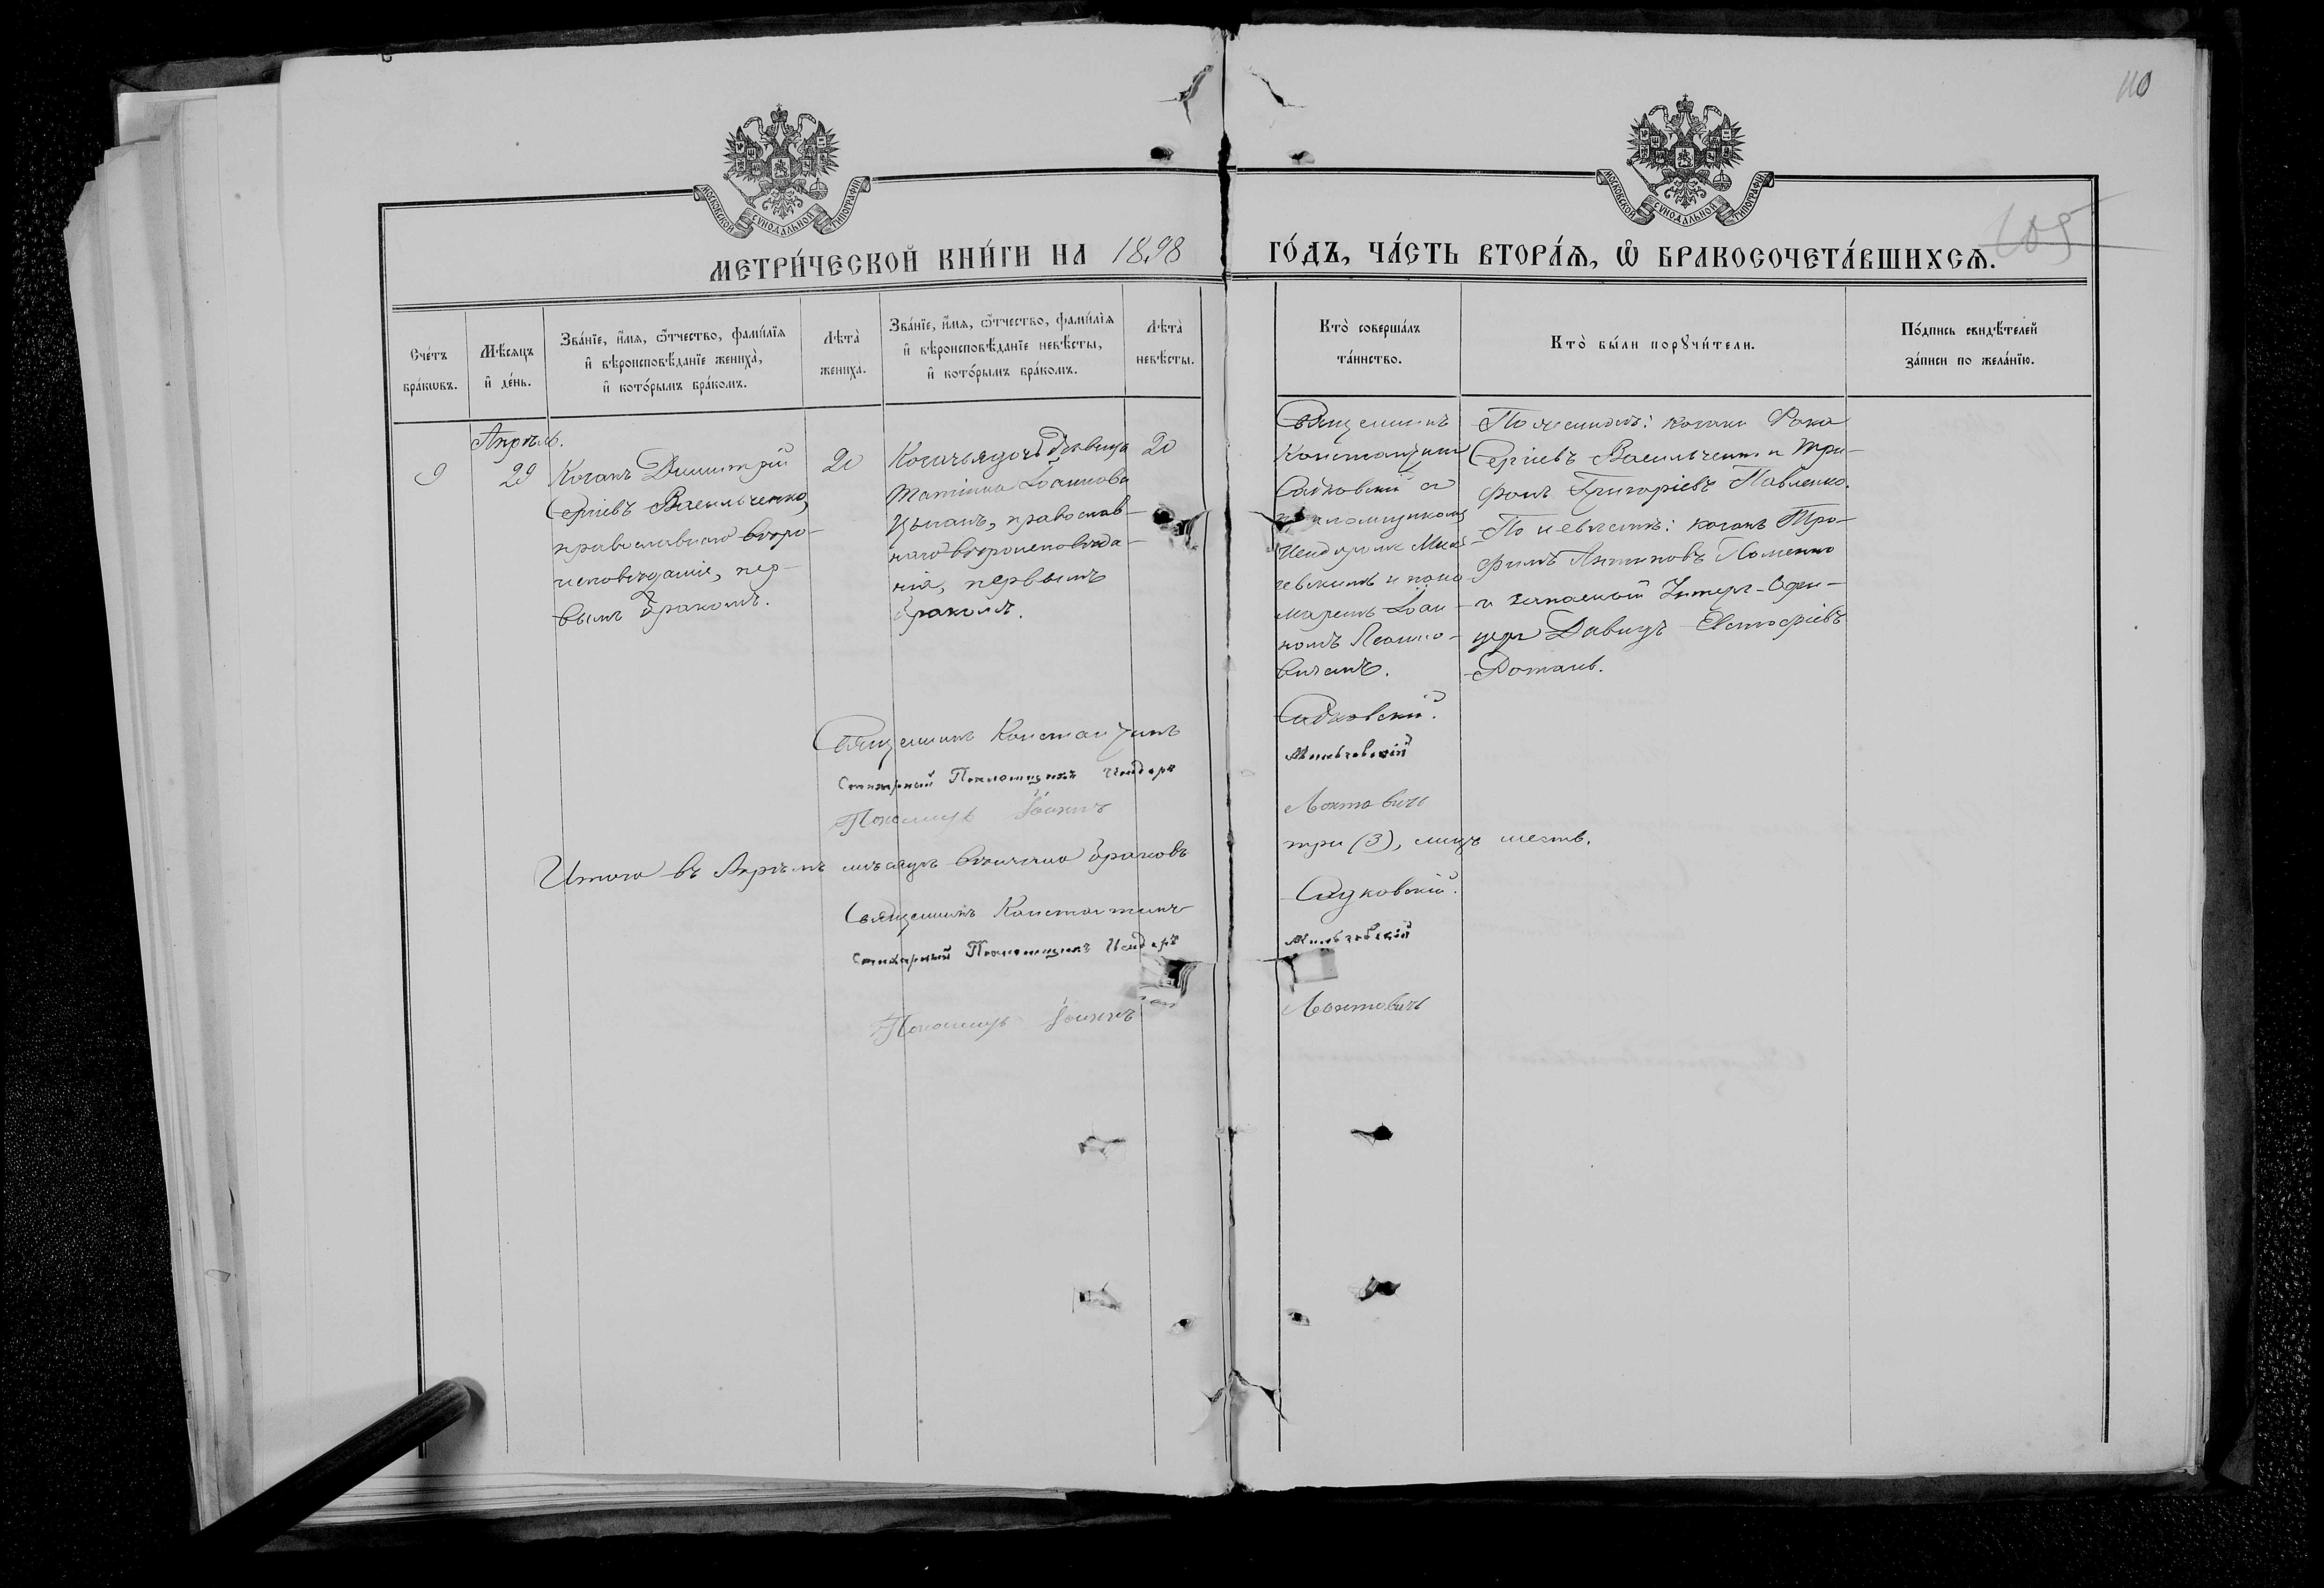 110
МОСКОВСКОЙ СУНОДАЛЬНОЙ ТИПОГРАФІИ
МОСКОВСКОЙ СУНОДАЛЬНОЙ ТИПОГРАФІИ
МЕТРИ́ЧЕСКОЙ КНИ́ГИ НА 1898 ГО́ДЪ, ЧА́СТЬ ВТОРА́Ѧ, Ѽ БРАКОСОЧЕТА́ВШИХСѦ.
105
Сче́тъ
бра́кѡвъ.
Мѣ́сяцъ
и̂ де́нь.
Зва́нїе, и́мѧ, ѻ́тчество, фами́лїѧ
и̂ вѣроисповѣ́данїе жениха̀,
и̂ кото́рымъ бра́комъ.
Лѣта̀
жениха.
Зва́нїе, и́мѧ, ѻ́тчество, фами́лїѧ
и̂ вѣроисповѣ́данїе невѣ́сты,
и̂ кото́рымъ бра́комъ.
Лѣта̀
невѣ́сты.
Кто̀ соверша́лъ
та́инство.
Кто̀ бы́ли порꙋчи́тели.
По́дпись свидѣ́телей
за́писи по жела́нїю.
9
Апрѣль.
29
Козакъ Димитрій
Сергіевъ Васильченко,
православнаго вѣро-
исповѣданія, пер-
вымъ бракомъ.
20
Козачья дочь дѣвица
Іоаннова
Цыганъ, православ-
наго вѣроисповѣда-
нія, первымъ
бракомъ.
20
Священникъ
Константинъ
Садковскій съ
псаломщикомъ
Исидоромъ
и поно-
маремъ Іоан-
номъ
вичемъ.
По женихѣ: козаки Фока
Сергіевъ Васильченко и Три-
фонъ Григоріевъ Павленко.
По невѣстѣ: козакъ Тро-
фимъ Антиповъ
и запасный Унтеръ-Офи-
церъ Давидъ Евстафіевъ
Священникъ Константинъ Садковскій.
Стихарный Псаломщикъ Исидоръ
Пономарь Іоаннъ
Итого въ Апрѣлѣ мѣсяцѣ вѣнчано браковъ три (3), лицъ шесть.
Священникъ Константинъ Садковскій.
Стихарный Псаломщикъ Исидоръ
Пономарь Іоаннъ